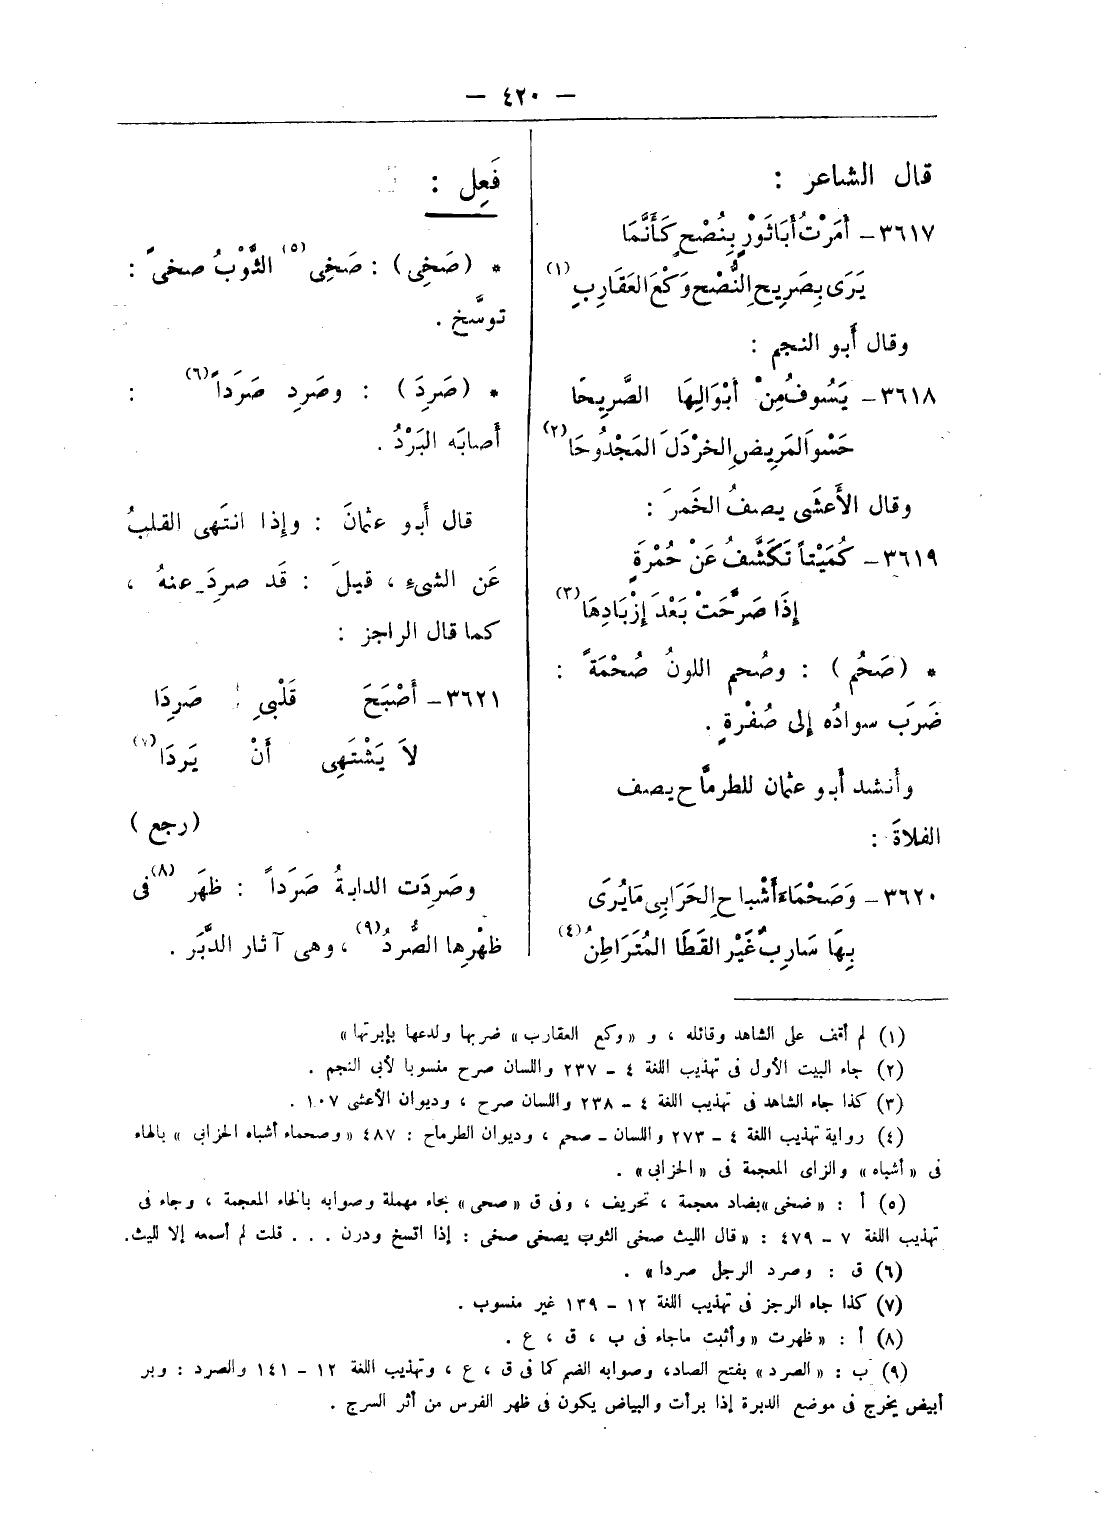 — ٤٢٠ —
قال الشاعر :
٣٦١٧ – أَمَرْتُ أَبَا ثَوْرٍ بِنُصْحٍ كَأَنَّمَا
يَرَى بِصَرِيحِ النُّصْحِ وَكْعَ العَقَارِبِ (١)
وقال أَبو النجم :
٣٦١٨ – يَسُوفُ مِنْ أَبْوَالِهَا الصَّرِيحَا
حَسْوَ المَرِيضِ الخَرْدَلَ المَجْدُوحَا (٢)
وقال الأَعشَى يصفُ الخَمرَ :
٣٦١٩ – كُمَيْتاً تَكَشَّفُ عَنْ حُمْرَةٍ
إِذَا صَرَّحَتْ بَعْدَ إِزْبَادِهَا (٣)
* (صَحُم) : وصُحم اللونُ صُحْمَةً :
ضَرَب سوادُه إلى صُفْرةٍ .
وأَنشد أَبو عثمان للطرمَّاح يصف
الفلاةَ :
٣٦٢٠ – وَصَحْمَاءَ أَشْبَاحِ الحَرَابِى مَا يُرَى
بِهَا سَارِبٌ غَيْر القَطَا المُتَرَاطِنُ (٤)
فَعِل :
* (صَخِى) : صَخِى (٥) الثَّوْبُ صخىً :
توسَّخ .
* (صَرِدَ) : وصَرِد صَرَداً (٦) :
أَصابَه البَرْدُ .
قال أَبو عثمانَ : وإِذا انتَهى القلبُ
عَن الشىءِ ، قيلَ : قَد صرِدَ عنهُ ،
كما قال الراجز :
٣٦٢١ – أَصْبَحَ قَلْبِى صَرِدَا
لاَ يَشْتَهِى أَنْ يَرِدَا (٧)
(رجع)
وصَرِدَت الدابةُ صَرَداً : ظهَر (٨) فى
ظهْرِها الصُّردُ (٩) ، وهى آثار الدَّبَر .
(١) لم أقف على الشاهد وقائله ، و «وكع العقارب» ضربها ولدعها بإبرتها»
(٢) جاء البيت الأول فى تهذيب اللغة ٤ – ٢٣٧ واللسان صرح منسوبا لأبى النجم .
(٣) كذا جاء الشاهد فى تهذيب اللغة ٤ – ٢٣٨ واللسان صرح ، وديوان الأعشى ١٠٧ .
(٤) رواية تهذيب اللغة ٤ – ٢٧٣ واللسان – صحم ، وديوان الطرماح : ٤٨٧ «وصحماء أشباه الحزابى » بالهاء
فى «أشباه» والزاى المعجمة فى «الحزابى» .
(٥) أ : «ضخى» بضاد معجمة ، تحريف ، وفى ق «صحى» بحاء مهملة وصوابه بالخاء المعجمة ، وجاء فى
تهذيب اللغة ٧ – ٤٧٩ : «قال الليث صخى الثوب يصخى صخى : إذا اتسخ ودرن . . . قلت لم أسمعه إلا لليث.
(٦) ق : وصرد الرجل صردا» .
(٧) كذا جاء الرجز فى تهذيب اللغة ١٢ – ١٣٩ غير منسوب .
(٨) أ : «ظهرت «وأثبت ماجاء فى ب ، ق ، ع .
(٩) ب : «الصرد» بفتح الصاد، وصوابه الضم كما فى ق ، ع ، وتهذيب اللغة ١٢ – ١٤١ والصرد : وبر
أبيض يخرج فى موضع الدبرة إذا برأت والبياض يكون فى ظهر الفرس من أثر السرج .